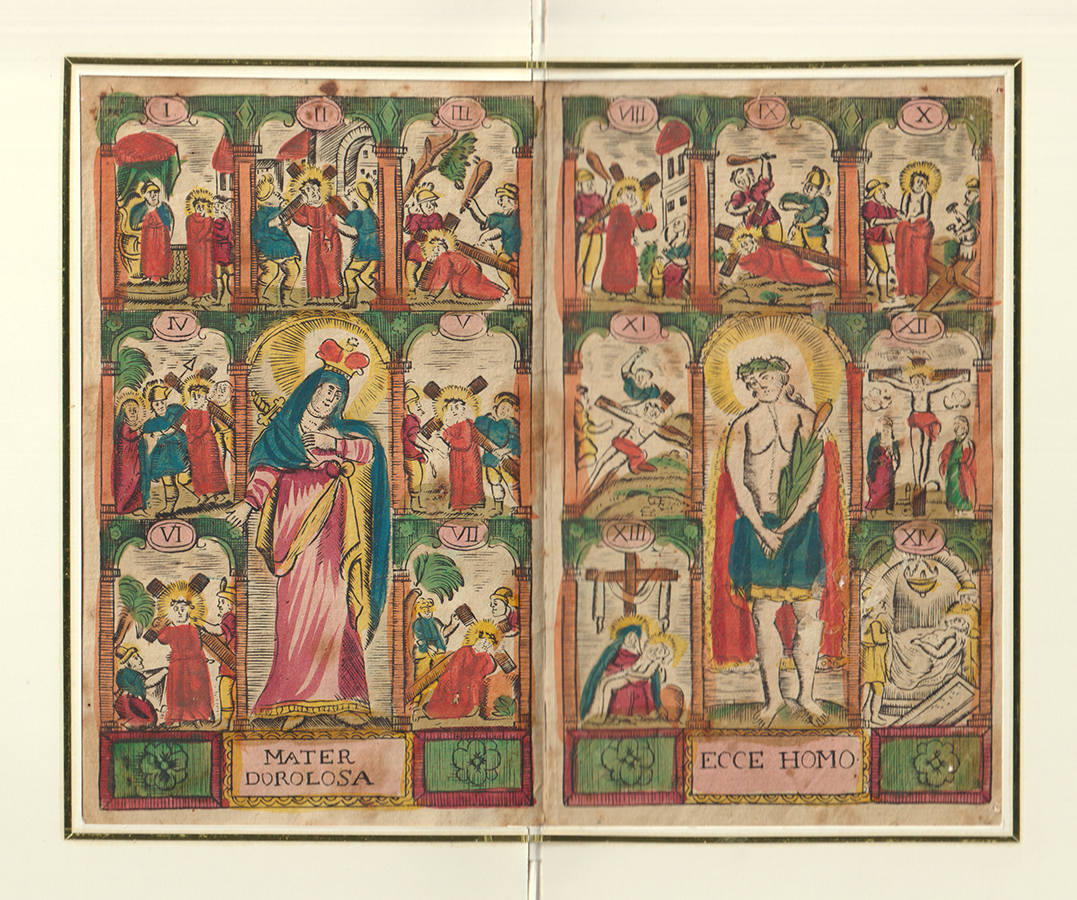 I II III
IV V
VI VII
MATER
DOROLOSA
VIII IX X
XI XII
XIII XIV
ECCE HOMO